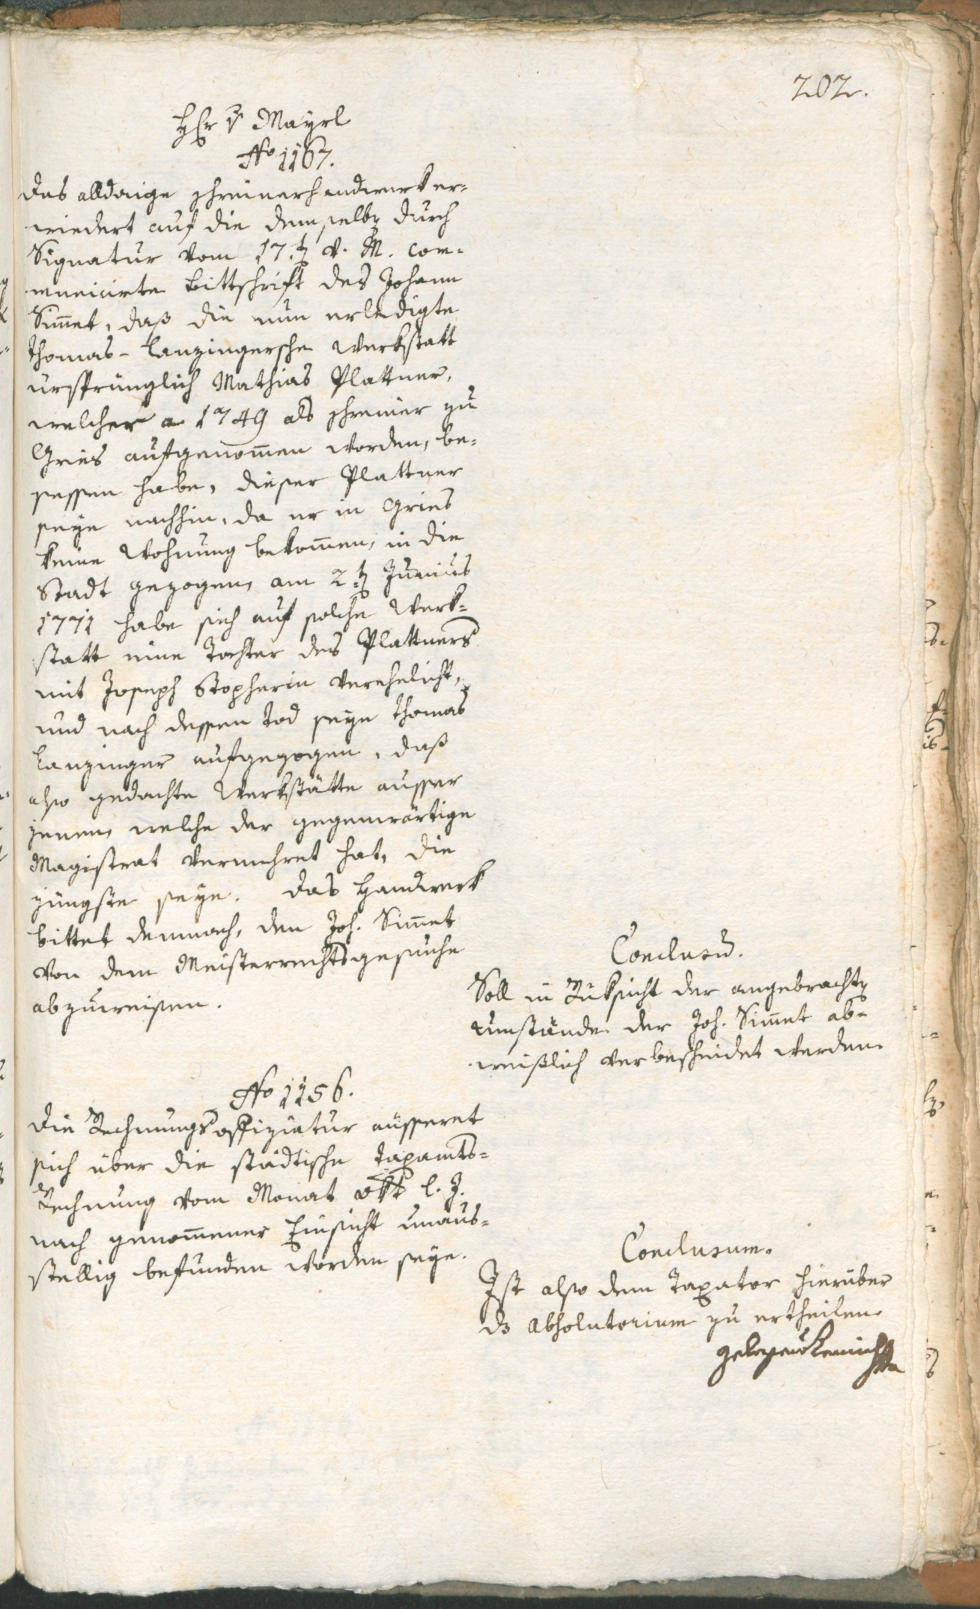 202.
Hr v Mayrl
No 1167.
Das alldaige Schreinerhandwerk er-
wiedert auf die demselbẽ durch
Signatur vom 17.t v. M. com-
municirte Bittschrift des Johann
Sim̄et, daß die nun erledigte
Thomas-Lanzingersche Werkstatt
ursprünglich Mathias Plattner,
welcher a 1749 als Schreiner zu
Gries aufgenom̄en worden, be-
sessen habe, dieser Plattner
seye nachhin, da er in Gries
keine Wohnung bekom̄en, in die
Stadt gezogen, am 2.t Junius
1771 habe sich auf solche Werk-
statt eine Tochter des Plattners
mit Joseph Stopherin verehelicht,
und nach dessen Tod seye Thomas
Lanzinger aufgezogen, daß
also gedachte Werkstätte ausser
jenen, welche der gegenwärtige
Magistrat vermehret hat, die
jüngste seye. Das Handwerk
bittet demnach, den Joh. Sim̄et
von dem Meisterrechtsgesuche
abzuweisen.
Conclusũ.
Soll in Rüksicht der angebrachtẽ
Umstände der Joh. Sim̄et ab-
weißlich verbescheidet werden.
No 1156.
Die Rechnungsoffiziatur äusseret
sich über die städtische Taxamts-
Rechnung vom Monat 8br l. J.
nach genom̄ener Einsicht unaus-
stellig befunden worden seye.
Conclusum.
Ist also dem Taxator hierüber
ds Absolutorium zu ertheilen.